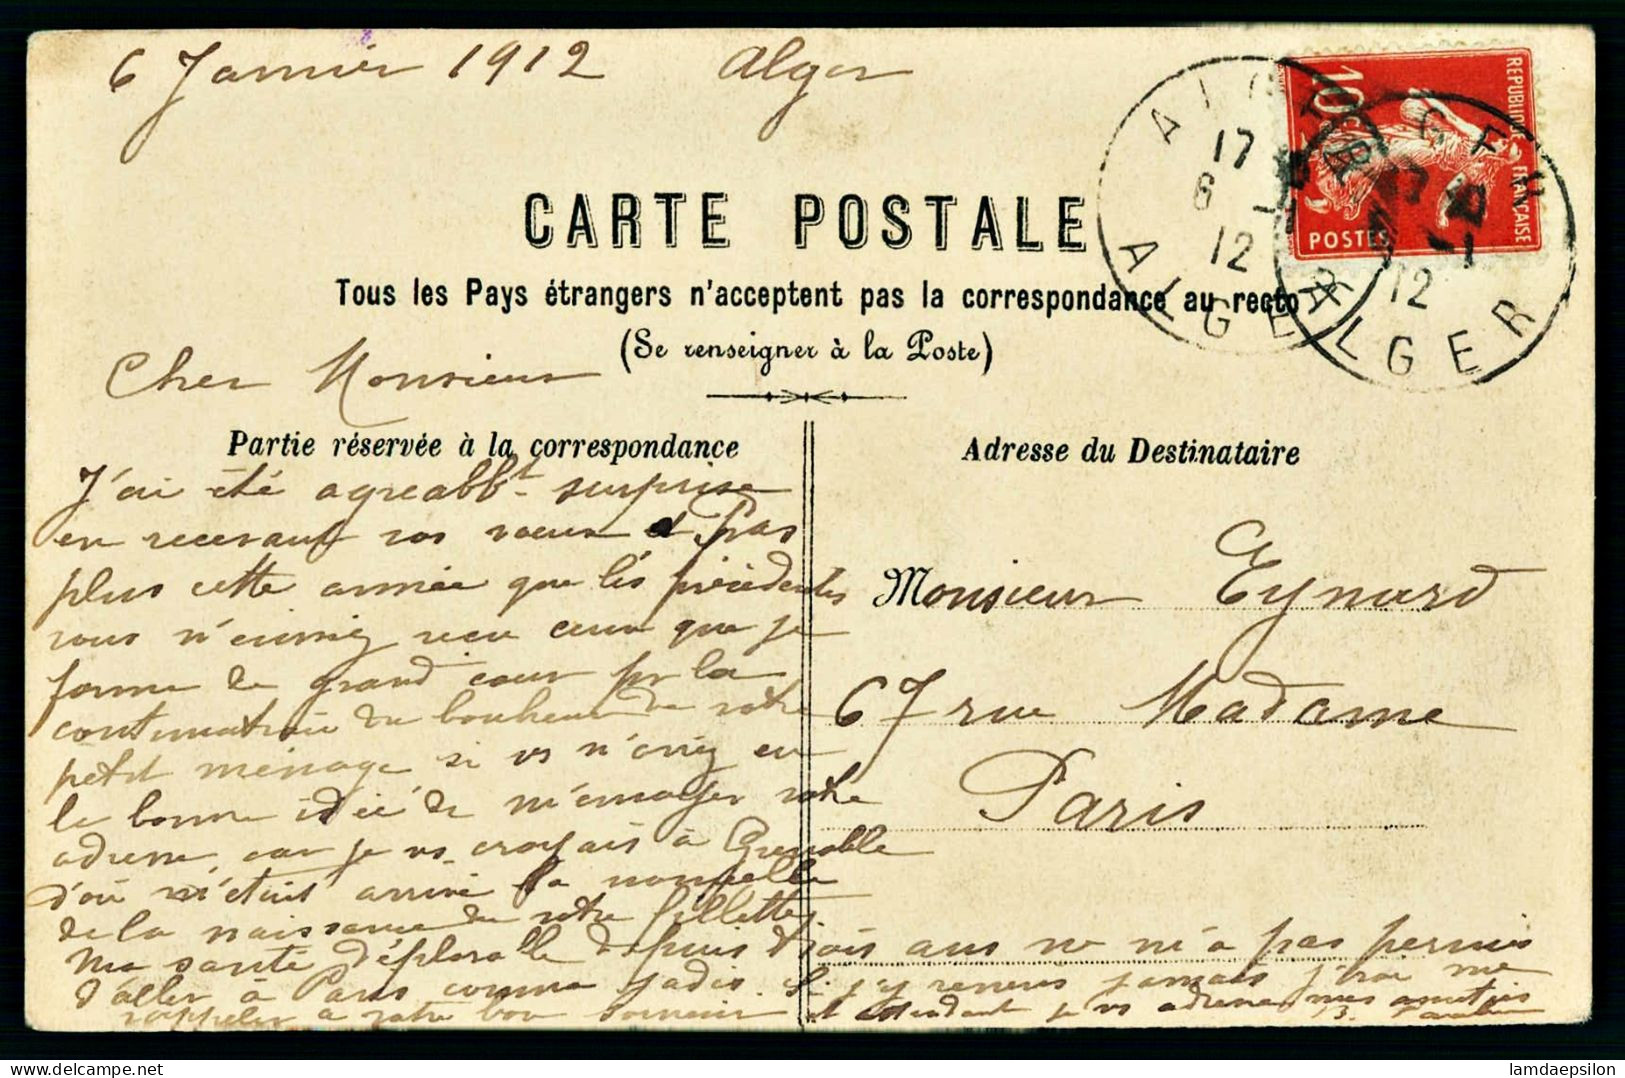 6 Janvier 1912 Alger
REPUBLIQUE FRANÇAISE
10c
POSTES
ALGER
17
6 -1
12
ALGER
ALGER
17
-1
12
ALGER
CARTE POSTALE
Tous les Pays étrangers n'acceptent pas la correspondance au recto
(Se renseigner à la Poste)
Cher Monsieur
Partie réservée à la correspondance
J'ai été agreabbt surprise
en recevant vos voeux et pas
plus cette année que les précédentes
vous n'auriez recu ceux que je
forme de grand coeur pr la
continuation du bonheur de votre
petit ménage si vs n'aviez eu
la bonne idée de m'envoyer votre
adresse car je vs croyais à Grenoble
d'où m'était arrivé la nouvelle
de la naissance de votre fillette.
Ma santé déplorable depuis trois ans ne m'a pas permis
d'aller à Paris comme jadis. Si j'y reviens jamais j'irai me
rappeler à votre bon souvenir et en attendant je vs adresse mes amitiés
Adresse du Destinataire
Monsieur Eynard
67 rue Madame
Paris
lamdaepsilon
delcampe.net